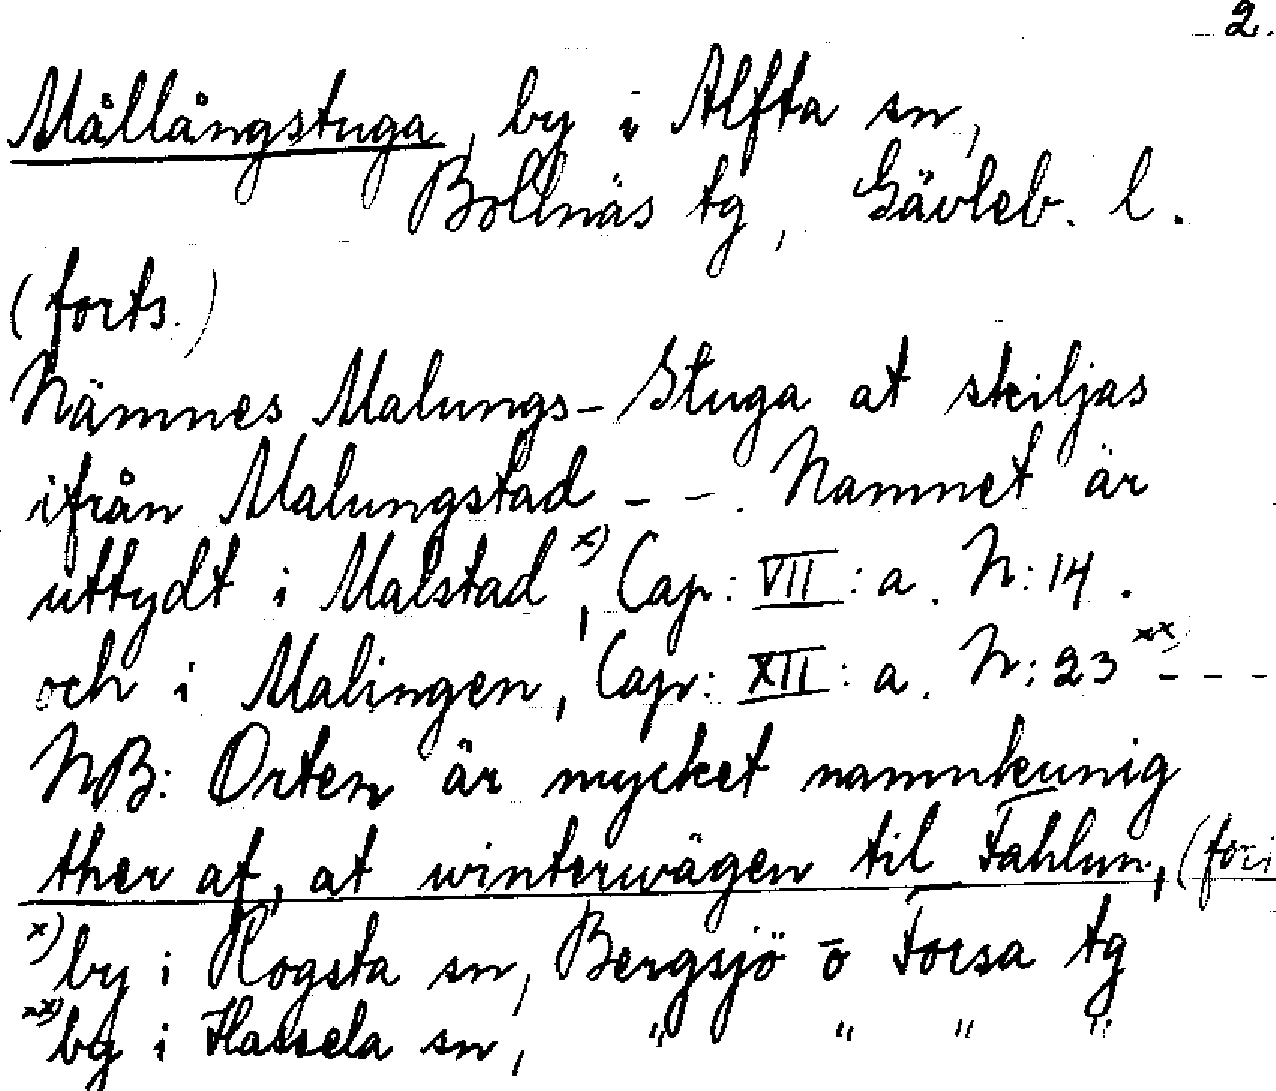 2.
Mållångstuga, by i Alfta sn,
Bollnäs tg, Gävleb. l.
(forts.)
Nämnes Malungs-Stuga at skiljas
ifrån Malungstad - - . Namnet är
uttydt i Malstad x), Cap: VII: a. N: 14.
och i Malingen, Cap: XII: a. N: 23 xx) - - -
NB: Orten är mycket namnkunig
ther af, at winterwägen til Fahlun,
x) by i Rogsta sn, Bergsjö o Forsa tg
xx) by i Hassela sn, " " " "